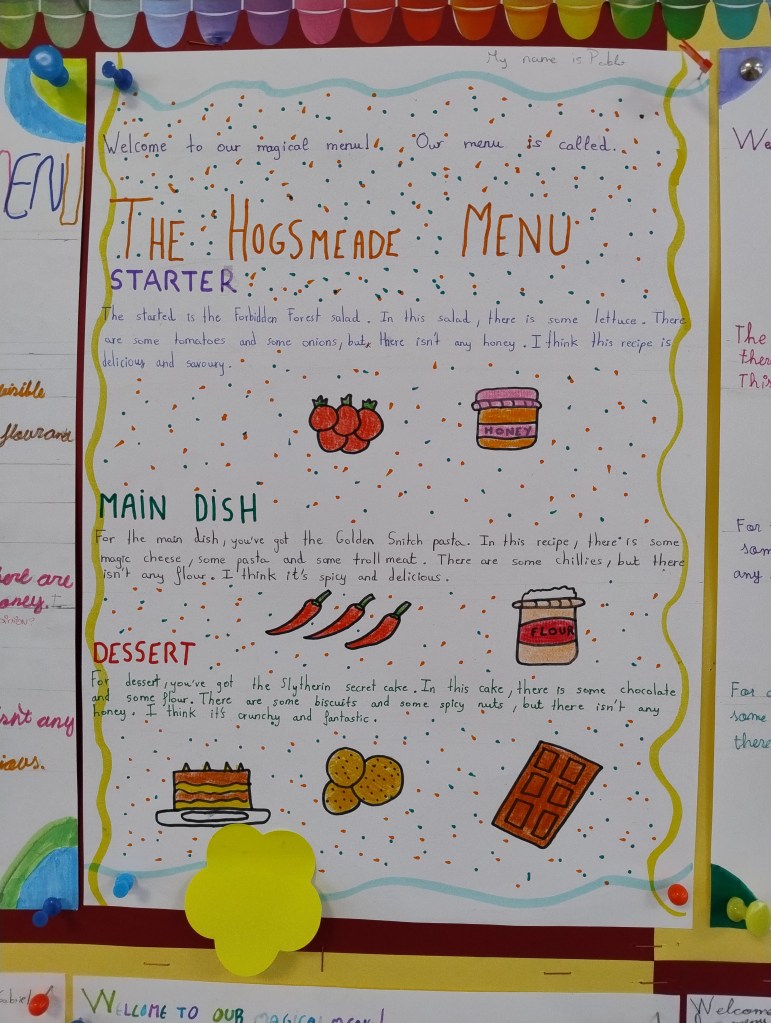 My name is Pabl
Welcome to our magical menu! Our menu is called.
THE HOGSMEADE MENU
STARTER
The started is the Forbidden Forest salad. In this salad, there is some lettuce. There
are some tomatoes and some onions, but, there isn't any honey. I think this recipe is
delicious and savoury.
HONEY
MAIN DISH
For the main dish, you've got the Golden Snitch pasta. In this recipe, there is some
magic cheese, some pasta and some troll meat. There are some chillies, but there
isn't any flour. I think it's spicy and delicious.
FLOUR
DESSERT
For dessert, you've got the Slytherin secret cake. In this cake, there is some chocolate
and some flour. There are some biscuits and some spicy nuts, but there isn't any
honey. I think it's crunchy and fantastic.
ENU
flour and
ere are
oney.
isn't any
ious.
We
The
ther
This
For
som
any
For
some
there
WELCOME TO OUR MAGICAL MENU!
Welcome